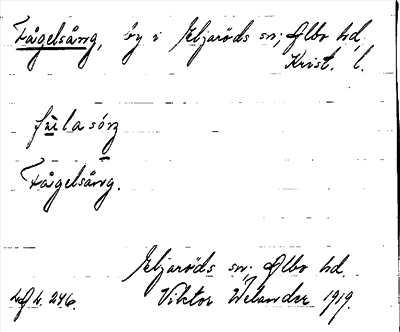 Fågelsång, by i Eljaröds sn; Albo hd.
Krist. l.
fúlasóŋ
Fågelsång.
Eljaröds sn; Albo hd.
Viktor Welander 1919.
246.